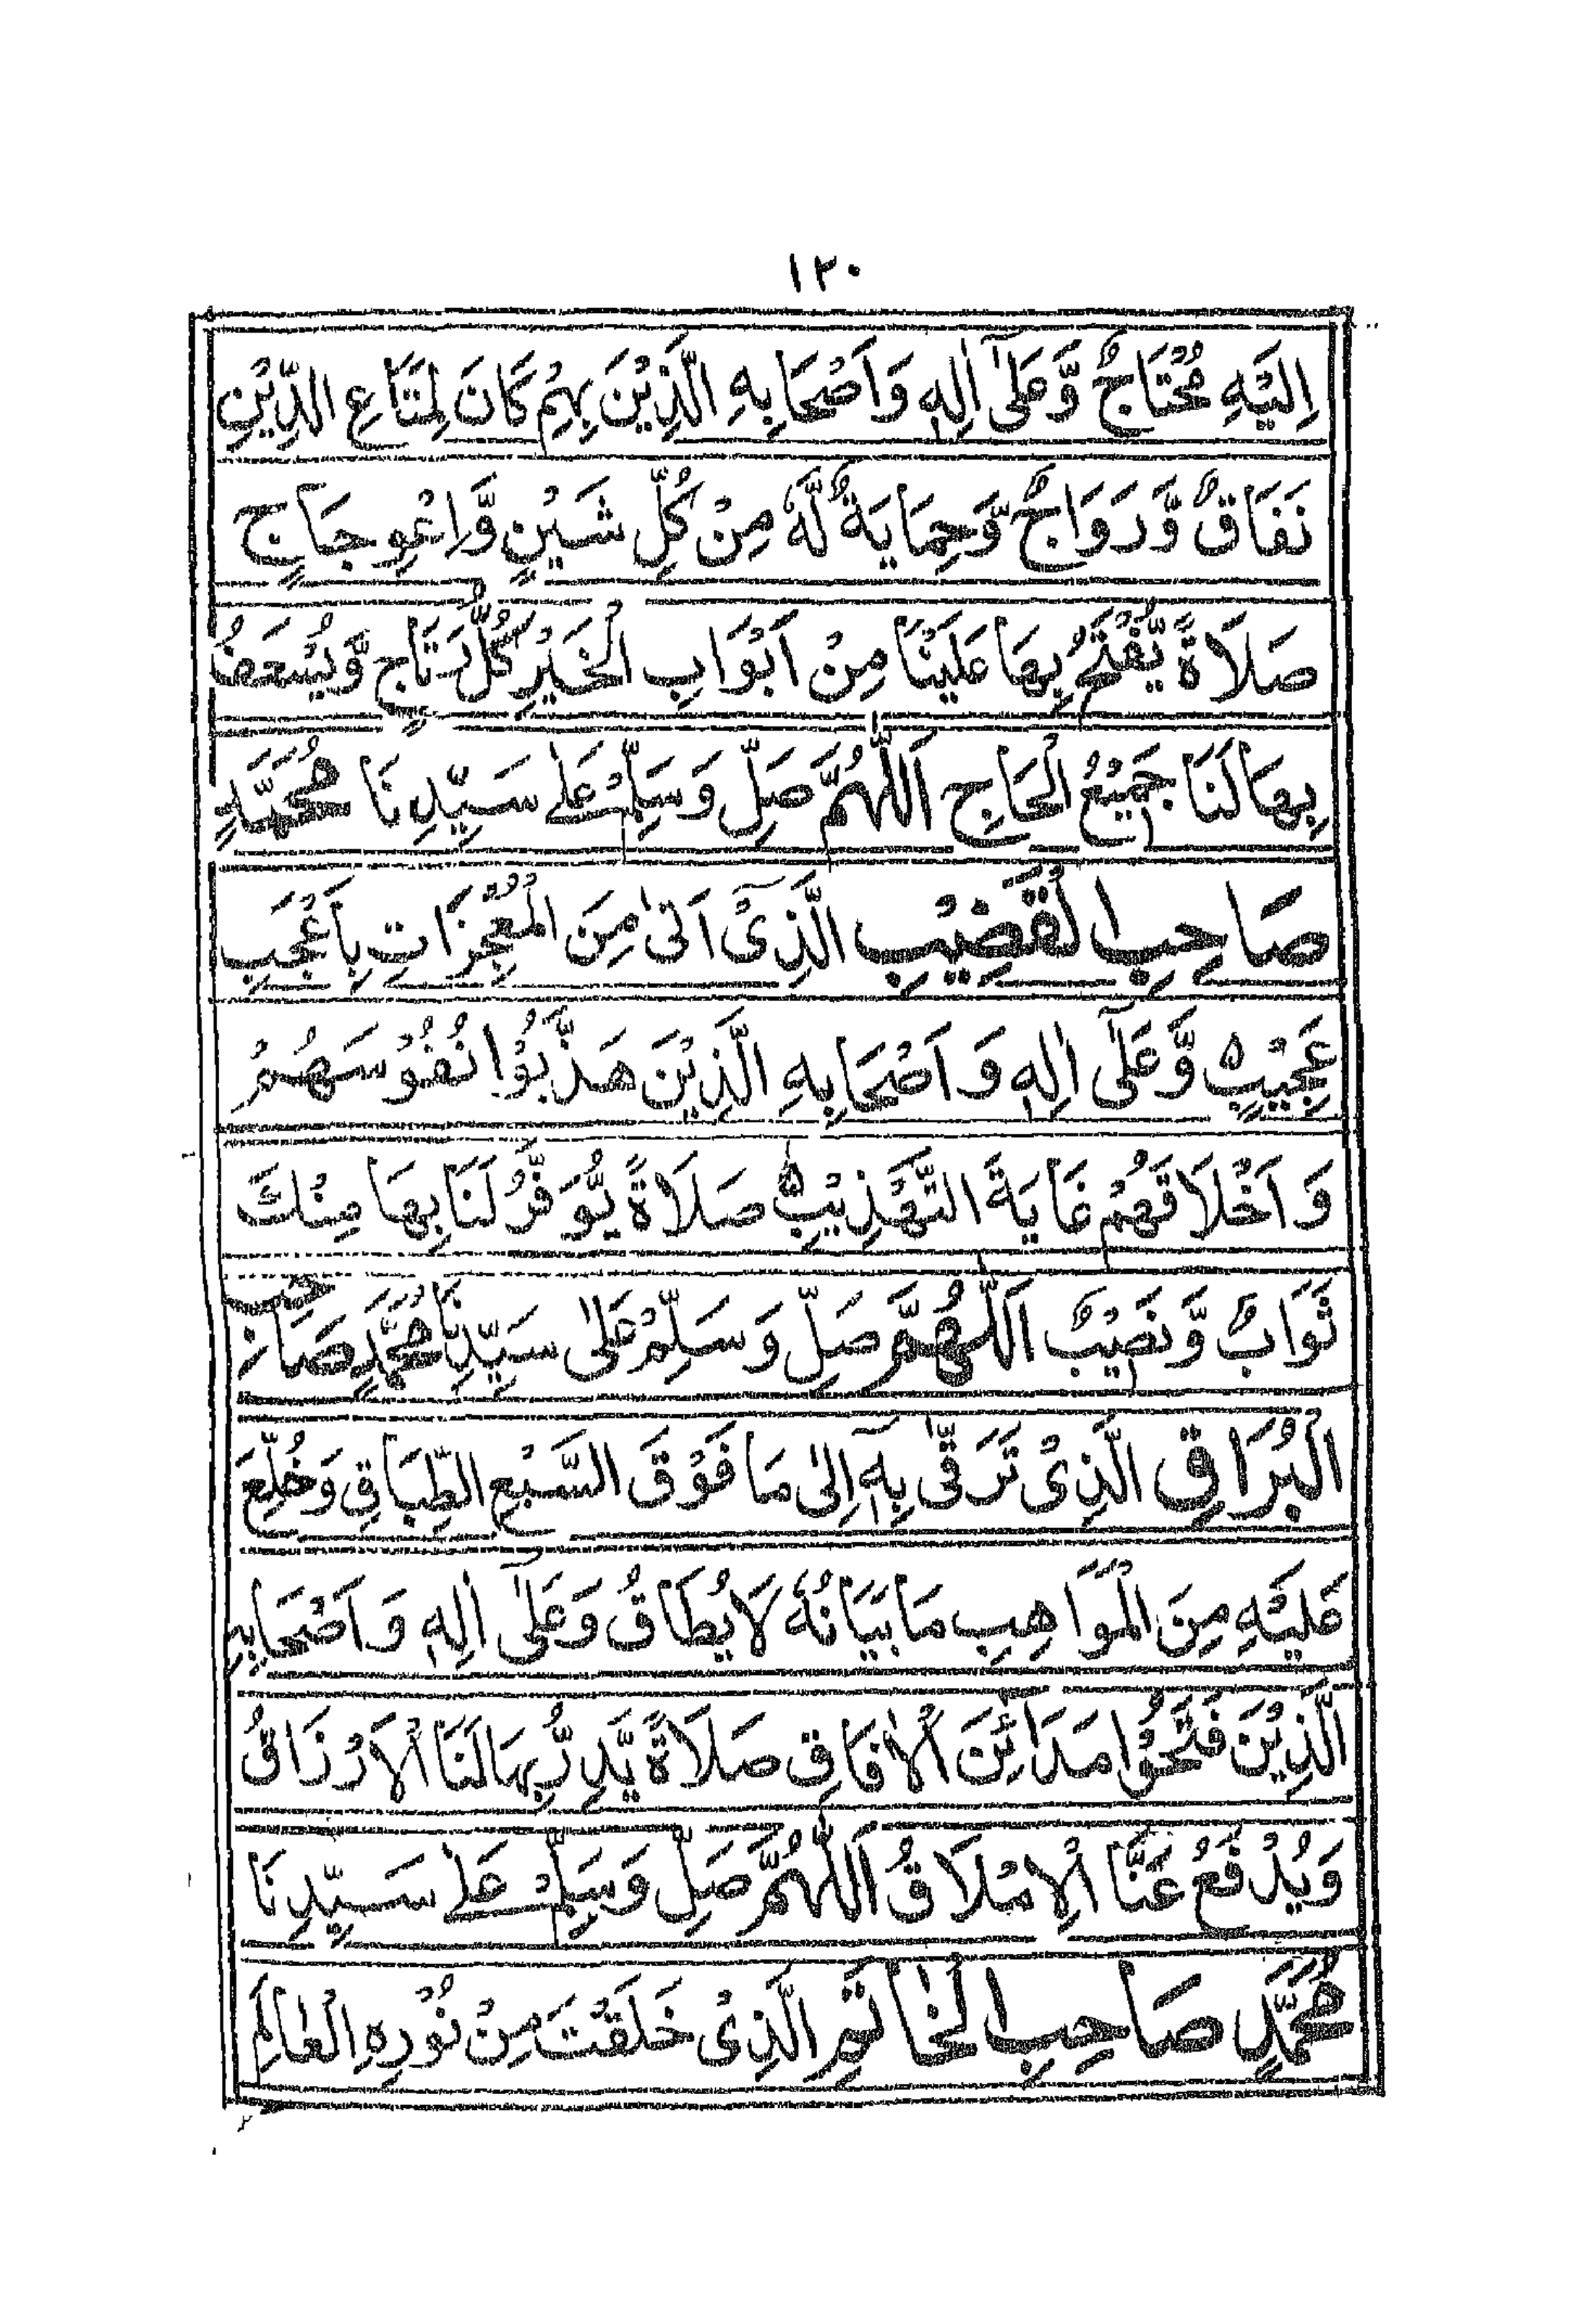 ١٢٠
اِلَيْهِ مُحْتَاجٌ وَّعَلٰٓى اٰلِهٖ وَاَصْحَابِهِ الَّذِيْنَ بِهِمْ كَانَ لِمَتَاعِ الدِّيْنِ
نَفَاقٌ وَّرَوَاجٌ وَّحِمَايَةٌ لَّهٗ مِنْ كُلِّ شَيْنٍ وَّاعْوِجَاجٍ
صَلَاةً يُّفْتَحُ بِهَا عَلَيْنَا مِنْ اَبْوَابِ الْخَيْرِ كُلُّ رَتَاجٍ وَّيُسْعَفُ
بِهَا لَنَا جَمِيْعُ الْحَاجِ اَللّٰهُمَّ صَلِّ وَسَلِّمْ عَلٰے سَيِّدِنَا مُحَمَّدٍ
صَاحِبِ الْقَضِيْبِ الَّذِىْٓ اَتٰى مِنَ الْمُعْجِزَاتِ بِاَعْجَبِ
عَجِيْبٍ وَّعَلٰٓى اٰلِهٖ وَاَصْحَابِهِ الَّذِيْنَ هَذَّبُوْا نُفُوْسَهُمْ
وَاَخْلَاقَهُمْ غَايَةَ التَّهْذِيْبِ صَلَاةً يُّوَفَّرُ لَنَا بِهَا مِنْكَ
ثَوَابٌ وَّنَصِيْبٌ اَللّٰهُمَّ صَلِّ وَسَلِّمْ عَلٰى سَيِّدِنَا مُحَمَّدٍ صَاحِبِ
الْبُرَاقِ الَّذِىْ تَرَقّٰى بِهٖٓ اِلٰى مَا فَوْقَ السَّبْعِ الطِّبَاقِ وَخُلِّعَ
عَلَيْهِ مِنَ الْمَوَاهِبِ مَا بَيَانُهٗ لَا يُطَاقُ وَعَلٰٓى اٰلِهٖ وَاَصْحَابِهِ
الَّذِيْنَ فَتَحُوْا مَدَائِنَ الْاٰفَاقِ صَلَاةً يَّدِرُّ بِهَا لَنَا الْاَرْزَاقُ
وَيُدْفَعُ عَنَّا الْاِمْلَاقُ اَللّٰهُمَّ صَلِّ وَسَلِّمْ عَلٰے سَيِّدِنَا
مُحَمَّدٍ صَاحِبِ الْخَاتَمِ الَّذِىْ خَلَقْتَ مِنْ نُوْرِهِ الْعٰالَمَ